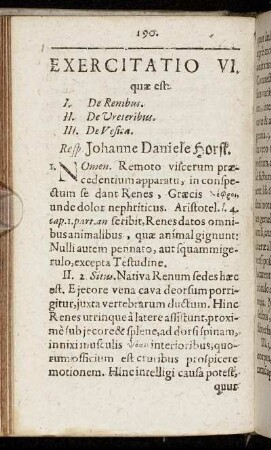 190.
EXERCITATIO VI.
quæ est
I. De Renibus.
II. De Vreteribus.
III. De Vesica.
Resp. Johanne Daniele Horst.
1. NOmen. Remoto viscerum præ-
cedentium apparatu, in conspe-
ctum se dant Renes, Græcis νέφροι
unde dolor nephriticus. Aristotel. l. 4.
cap. 1. part. an scribit, Renes datos omni-
bus animalibus, quæ animal gignunt:
Nulli autem pennato, aut squammige-
rulo, excepta Testudine.
II. 2. Situs. Nativa Renum sedes hæc
est. Ejecore vena cava deorsum porri-
gitur, juxta vertebrarum ductum. Hinc
Renes utrinque à latere assistunt, proxi-
mè sub jecore & splene, ad dorsi spinam,
innixi musculis interioribus, quo-
rum officium est cruribus prospicere
motionem. Hinc intelligi causa potest,
quur